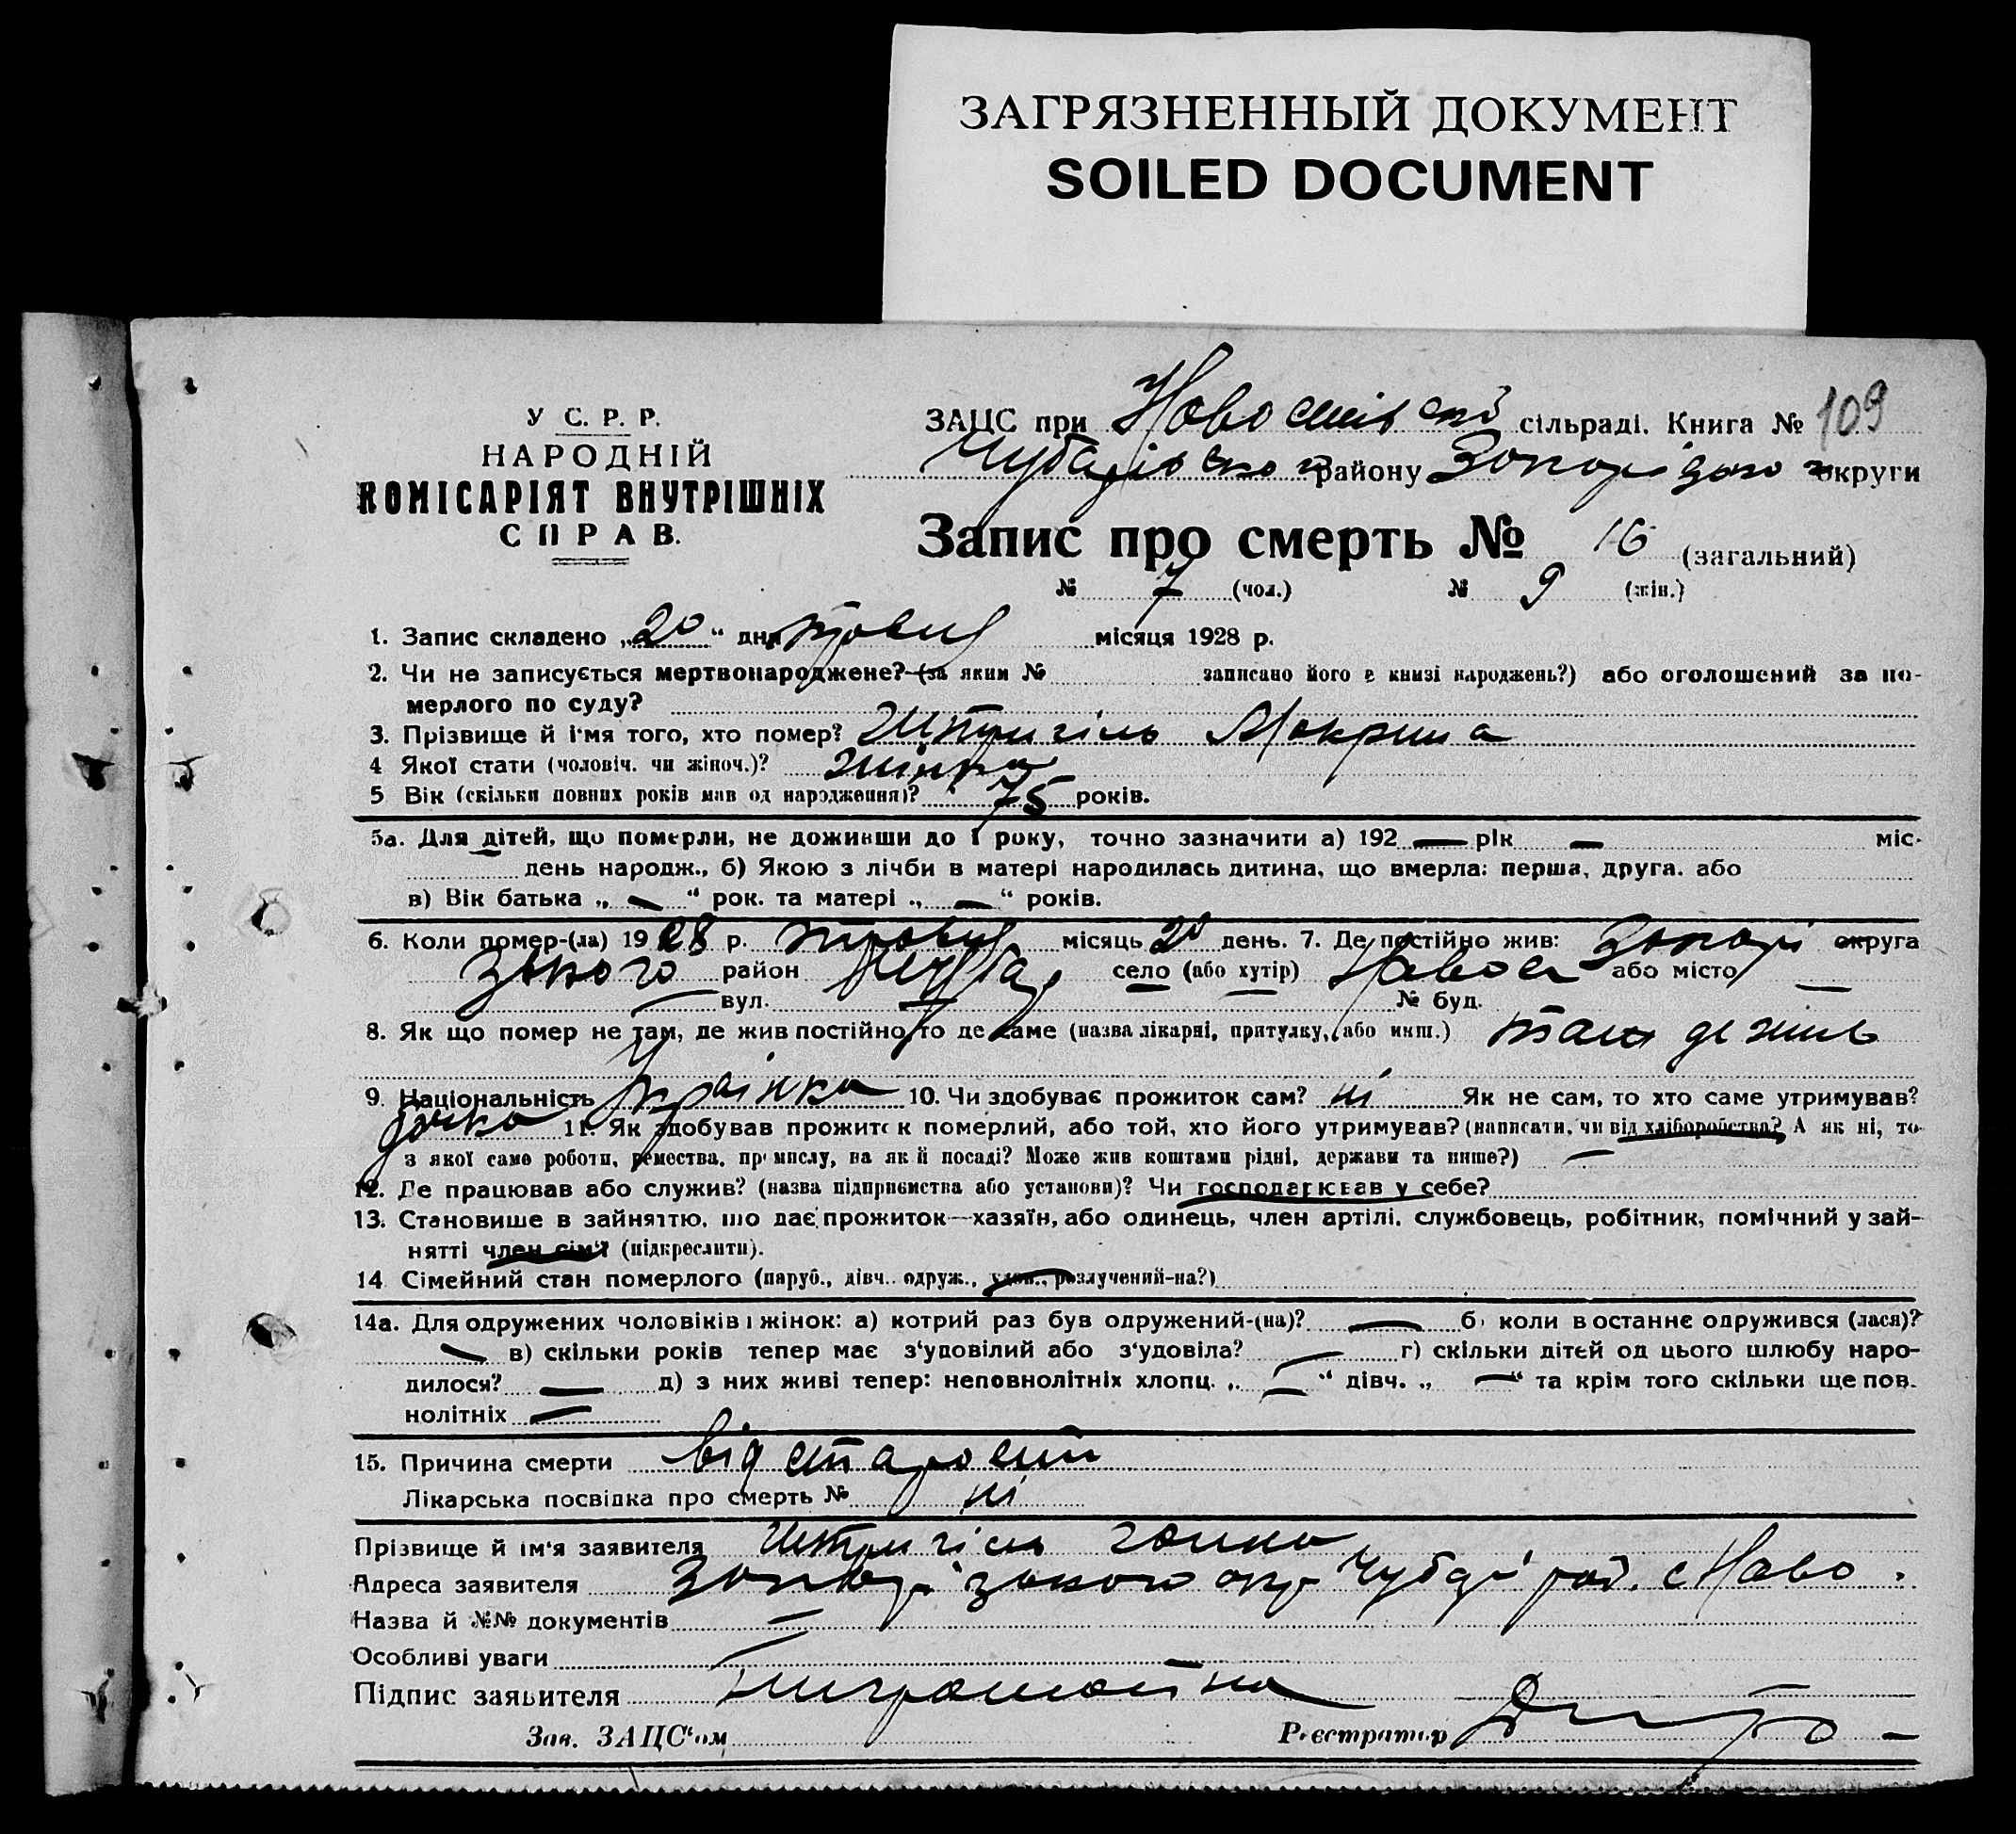 ЗАГРЯЗНЕННЫЙ ДОКУМЕНТ
SOILED DOCUMENT
У С. Р. Р.
НАРОДНІЙ
КОМІСАРІЯТ ВНУТРІШНІХ
СПРАВ.
ЗАЦС при сільраді. Книга № 109
району округи
Запис про смерть № 16 (загальний)
№ 7 (чол.) № 9 (жін.)
1. Запис складено „20" дня травня місяця 1928 р.
2. Чи не записується мертвонароджене? (за яким № записано його в книзі народжень?) або оголошений за по-
мерлого по суду?
3. Прізвище й і'мя того, хто помер? Мокрина
4 Якої стати (чоловіч. чи жіноч.)? жінка
5 Вік (скільки повних років мав од народження)? 75 років.
5а. Для дітей, що померли, не доживши до 1 року, точно зазначити а) 192 — рік — міс-
день народж., б) Якою з лічби в матері народилась дитина, що вмерла: перша, друга. або
в) Вік батька „ — " рок. та матері „ — " років.
6. Коли помер-(ла) 1928 р. травня місяць 20 день. 7. Де постійно жив: Запорі округа
зького район Чубар село (або хутір) або місто —
— вул. — № буд.
8. Як що помер не там, де жив постійно, то де саме (назва лікарні, притулку, або инш.) там де жив
9. Національність Українка 10. Чи здобуває прожиток сам? ні Як не сам, то хто саме утримував?
дочка 11. Як здобував прожиток померлий, або той, хто його утримував? (написати, чи від хліборобства? А як ні, то
з якої саме роботи, ремества, промислу, на якій посаді? Може жив коштами рідні, держави та инше?) —
12. Де працював або служив? (назва підприємства або установи)? Чи господарював у себе?
13. Становище в зайняттю, що дає прожиток—хазяїн, або одинець, член артілі, службовець, робітник, помічний у зай-
нятті член сім'ї (підкреслити).
14. Сімейний стан померлого (паруб., дівч.. одруж., удов., розлучений-на?)
14а. Для одружених чоловіків і жінок: а) котрий раз був одружений-(на)? — б) коли в останнє одружився (лася)?
— в) скільки років тепер має з'удовілий або з'удовіла? — г) скільки дітей од цього шлюбу наро-
дилося? — д) з них живі тепер: неповнолітніх хлопц. „ — " дівч. „ — " та крім того скільки ще пов-
нолітніх —
15. Причина смерти від старости
Лікарська посвідка про смерть № ні
Прізвище й ім'я заявителя Ганна
Адреса заявителя зького окр. Чубарі рай. с Ново
Назва й №№ документів —
Особливі уваги —
Підпис заявителя неграмотна
Зав. ЗАЦС'ом Реєстратор